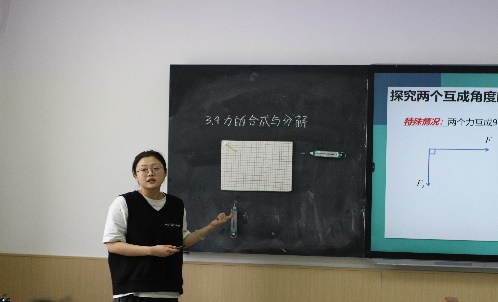 3.4 力的合成与分解
探究两个互成角度
特殊情况：两个力互成9
F
F₂